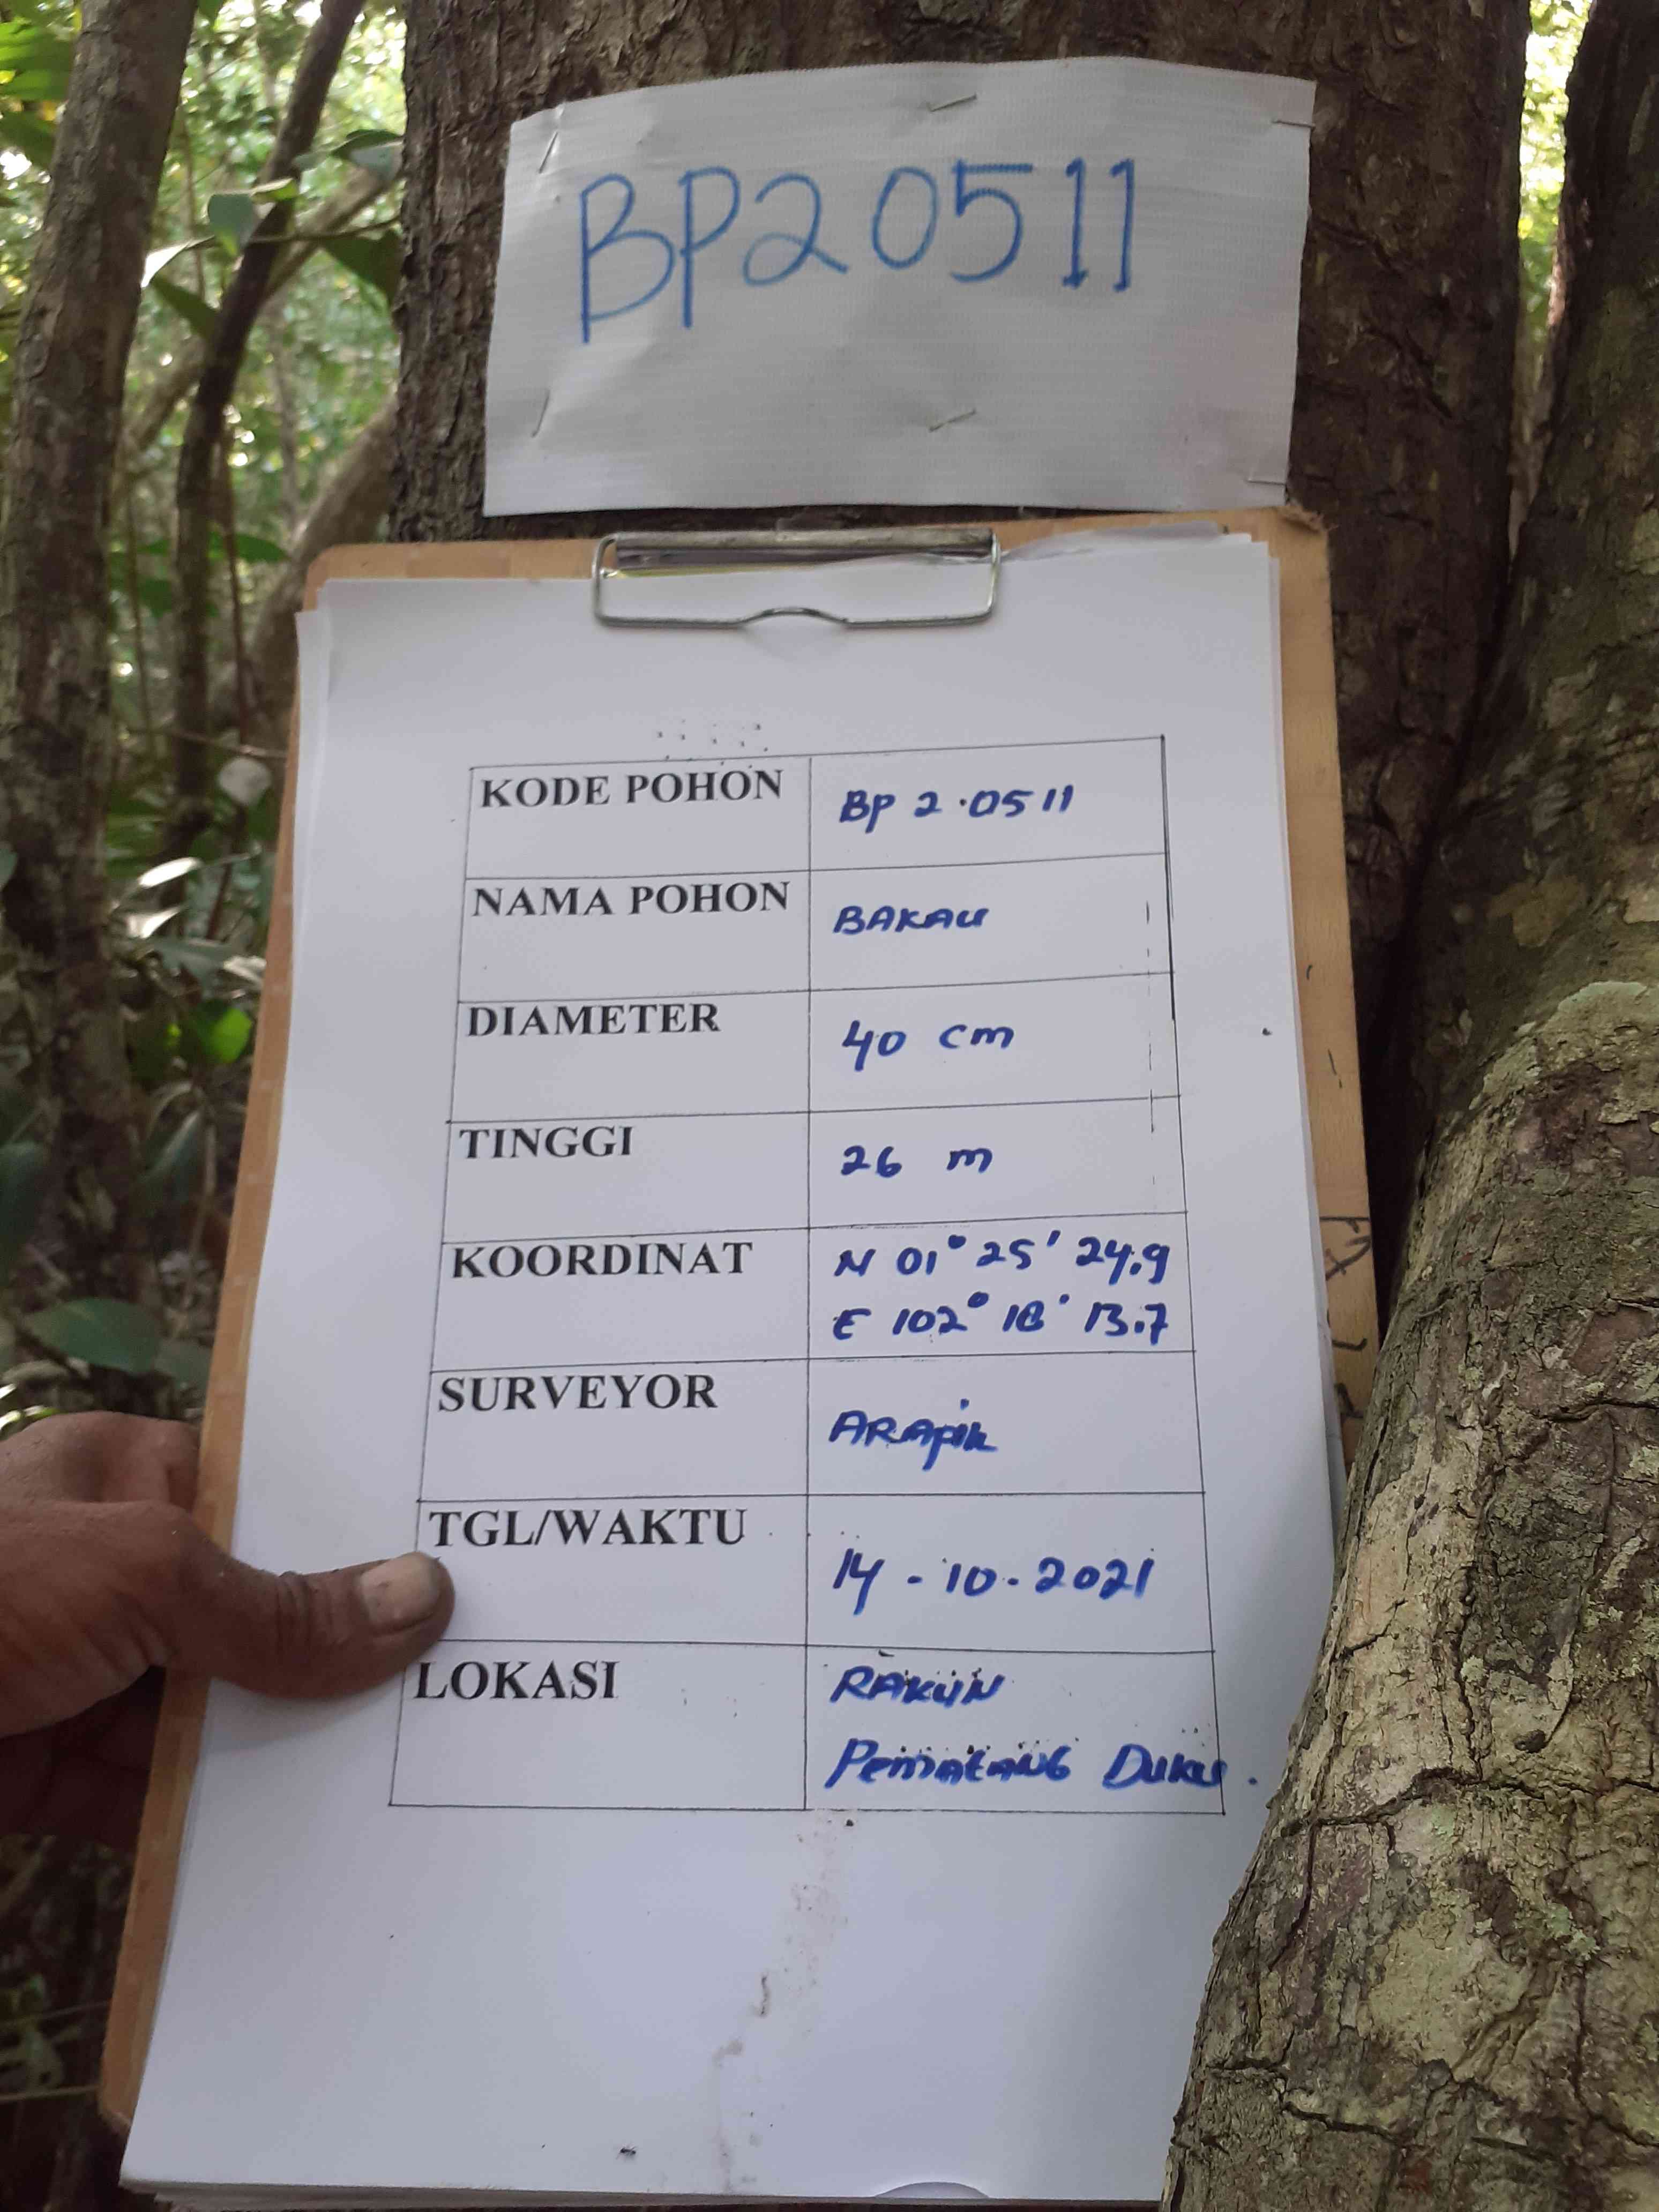 BP20511
KODE POHON Bp 2.0511
NAMA POHON BAKAU
DIAMETER 40 cm
TINGGI 26 m
KOORDINAT N 01° 25' 24.9
E 102° 18' 13.7
SURVEYOR ARApik
TGL/WAKTU 14-10-2021
LOKASI RAKUN
PematANG DUKU.